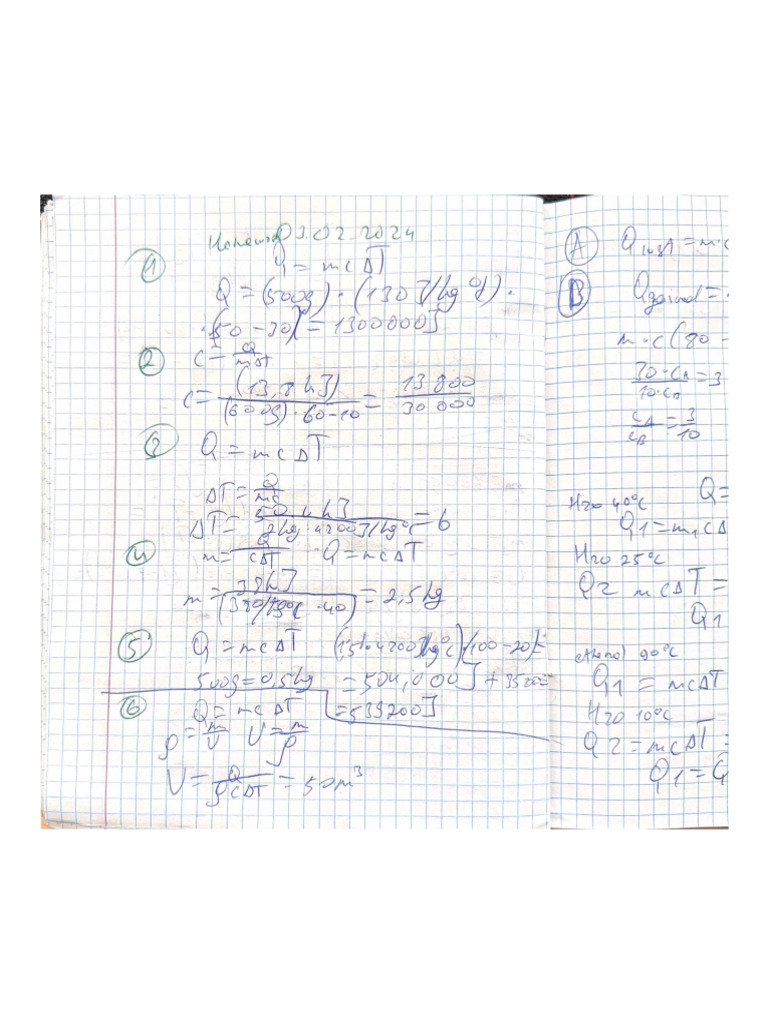 03.02.2024
1
Q = mcΔT
Q = (500g) · (130J/kg°C) ·
· (50 - 30) = 1300000J
2
c = Q/mΔT
c = (13,8kJ)/((600g) · 60-10) = 13 800/30 000
3
Q = mcΔT
ΔT = Q/mc
ΔT = 50,4kJ/(2kg · 4200J/kg°C) = 6
4
m = Q/cΔT Q = mcΔT
m = 38kJ/(380J/kg°C · 40) = 2,5kg
5
Q = mcΔT (1,5)(4200J/kg°C)(100-20)=
500g = 0,5kg = 504,000J + 35200=
= 539200J
6
Q = mcΔT
ρ = m/V V = m/ρ
V = Q/ρcΔT = 50m³
A
= m·c
B
m·c(80-
30·cA/10·cB = 3
cA/cB = 3/10
H2O 40°C
Q=
Q1 = m1cΔ
H2O 25°C
Q2 mcΔT =
Q1
90°C
Q1 = mcΔT
H2O 10°C
Q2 = mcΔT =
Q1 = Q